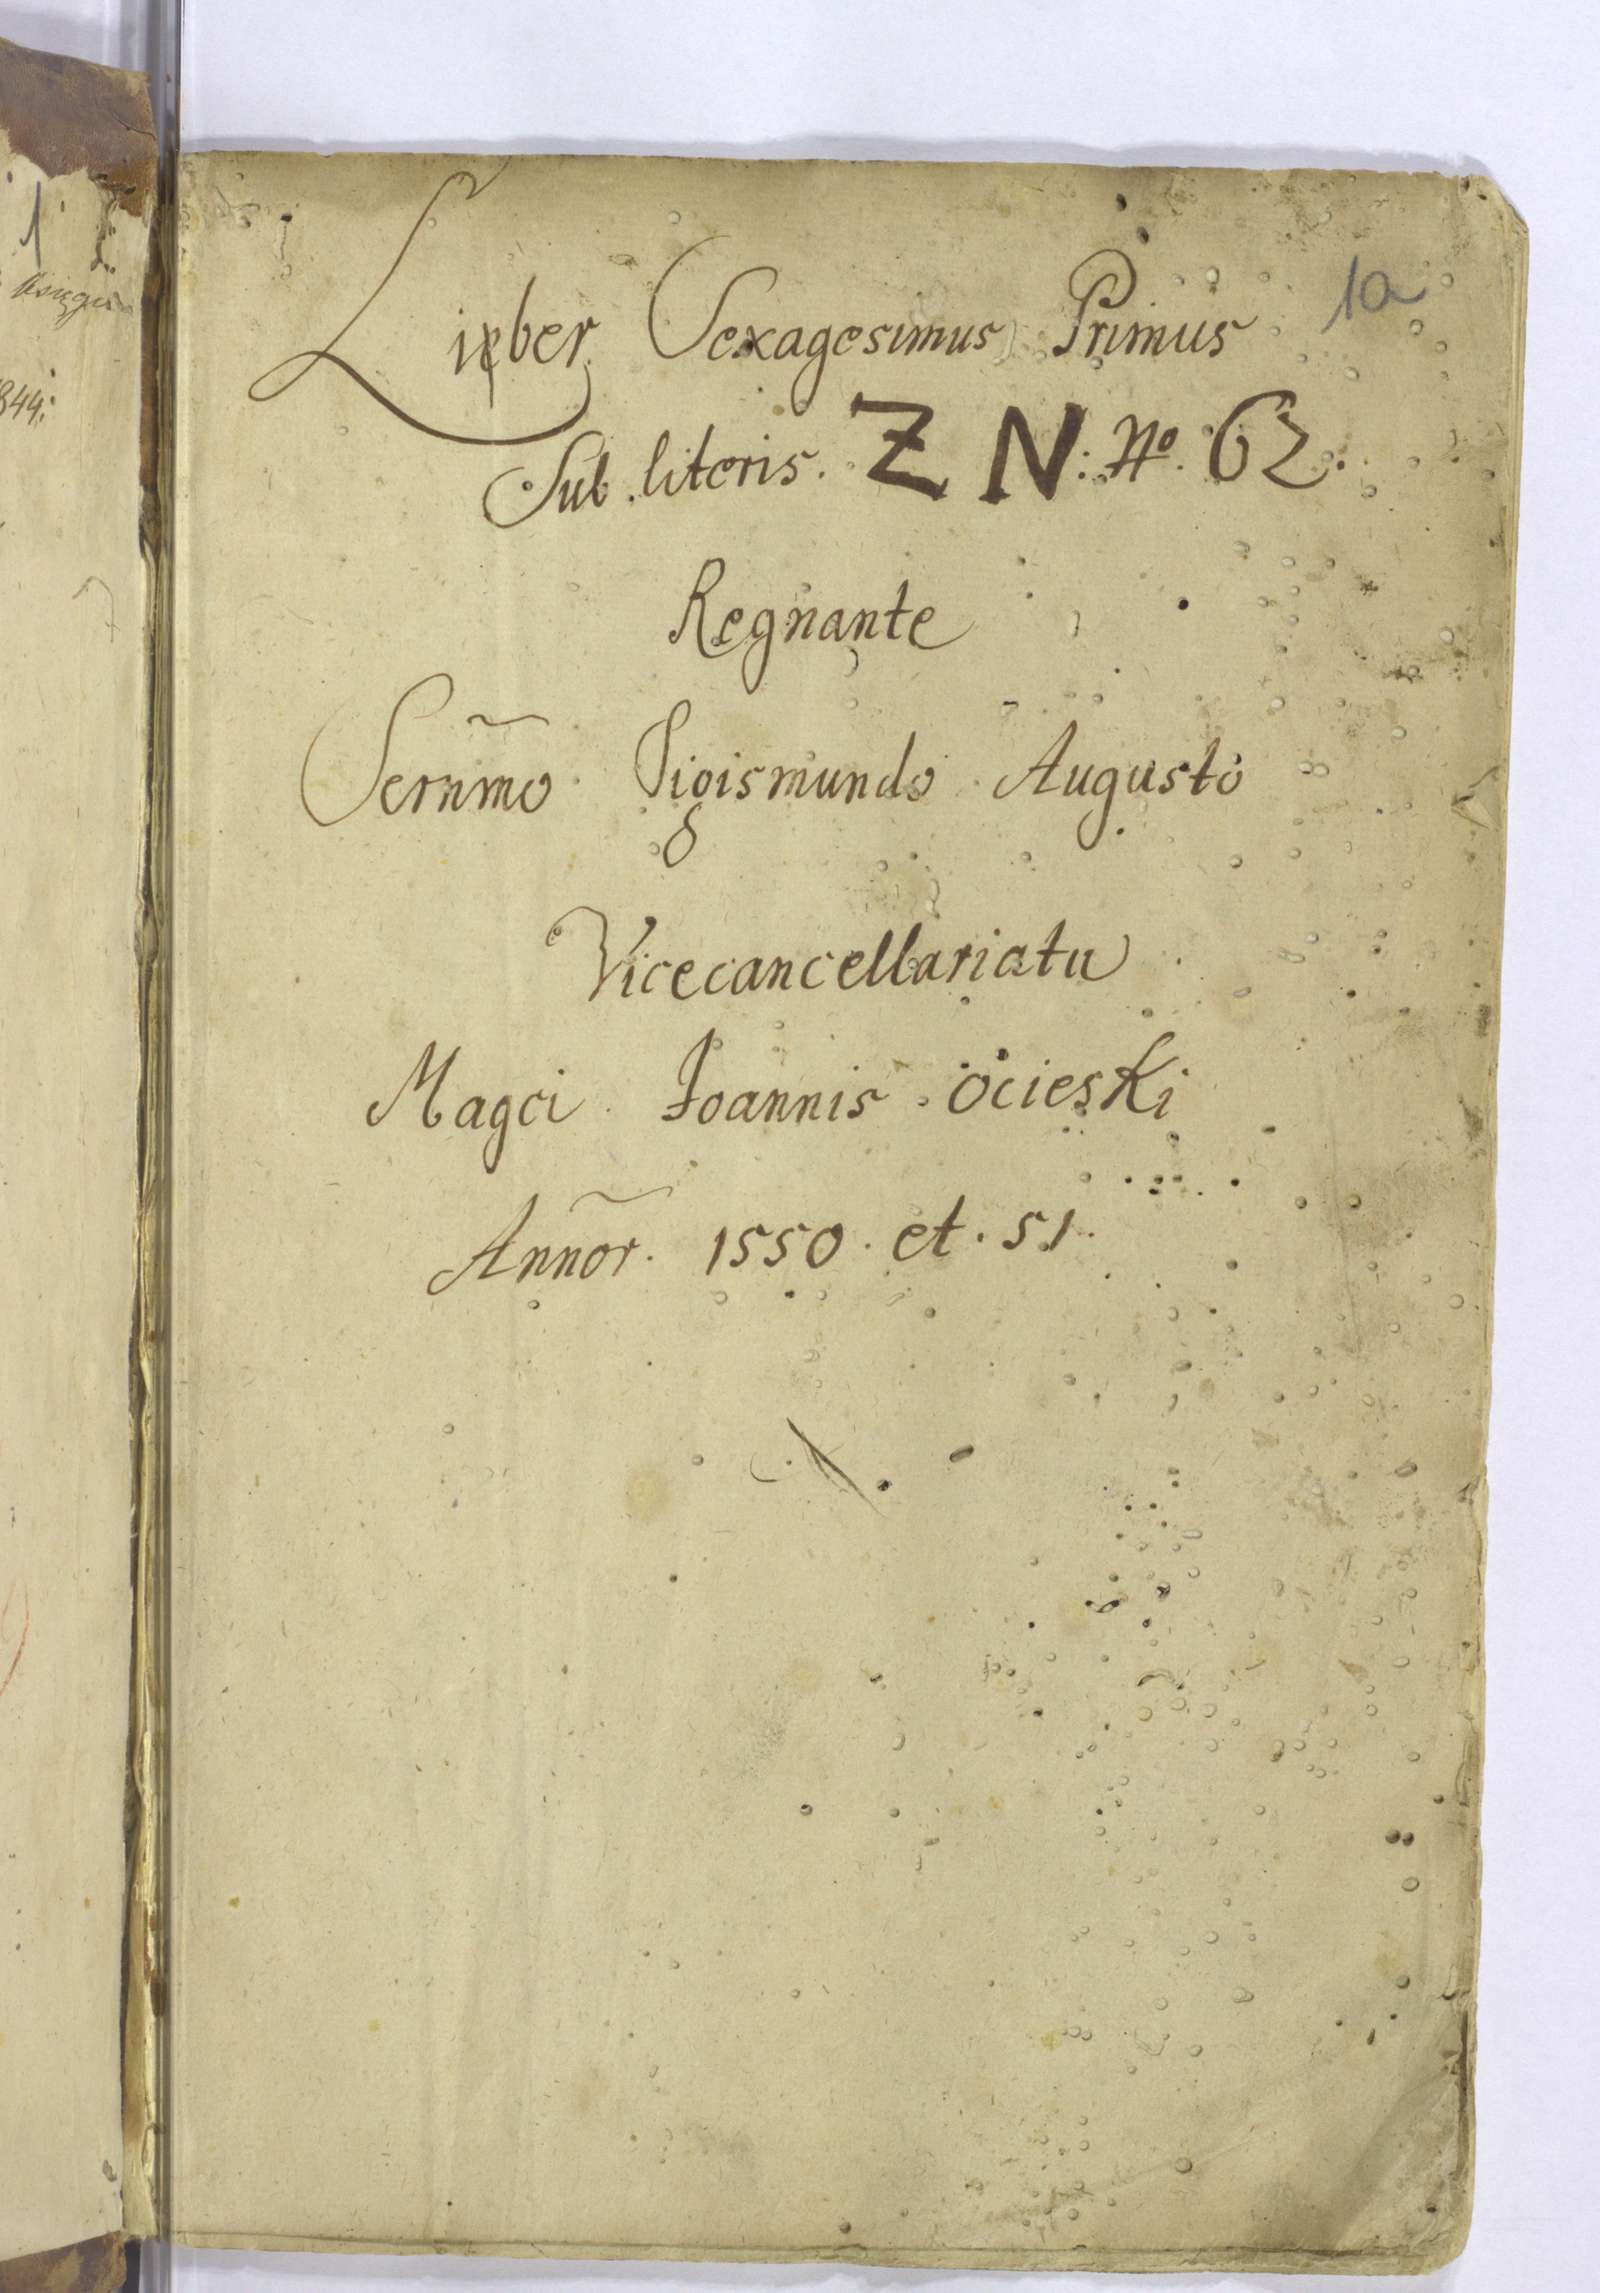 1
844:
1a
Lieber Sexagesimus Primus
Sub literis. Z N: No. 62.
Regnante
Sernmo Sigismundo Augusto
Vicecancellariatu
Magci Joannis Ocieski
Annor. 1550. et. 51.